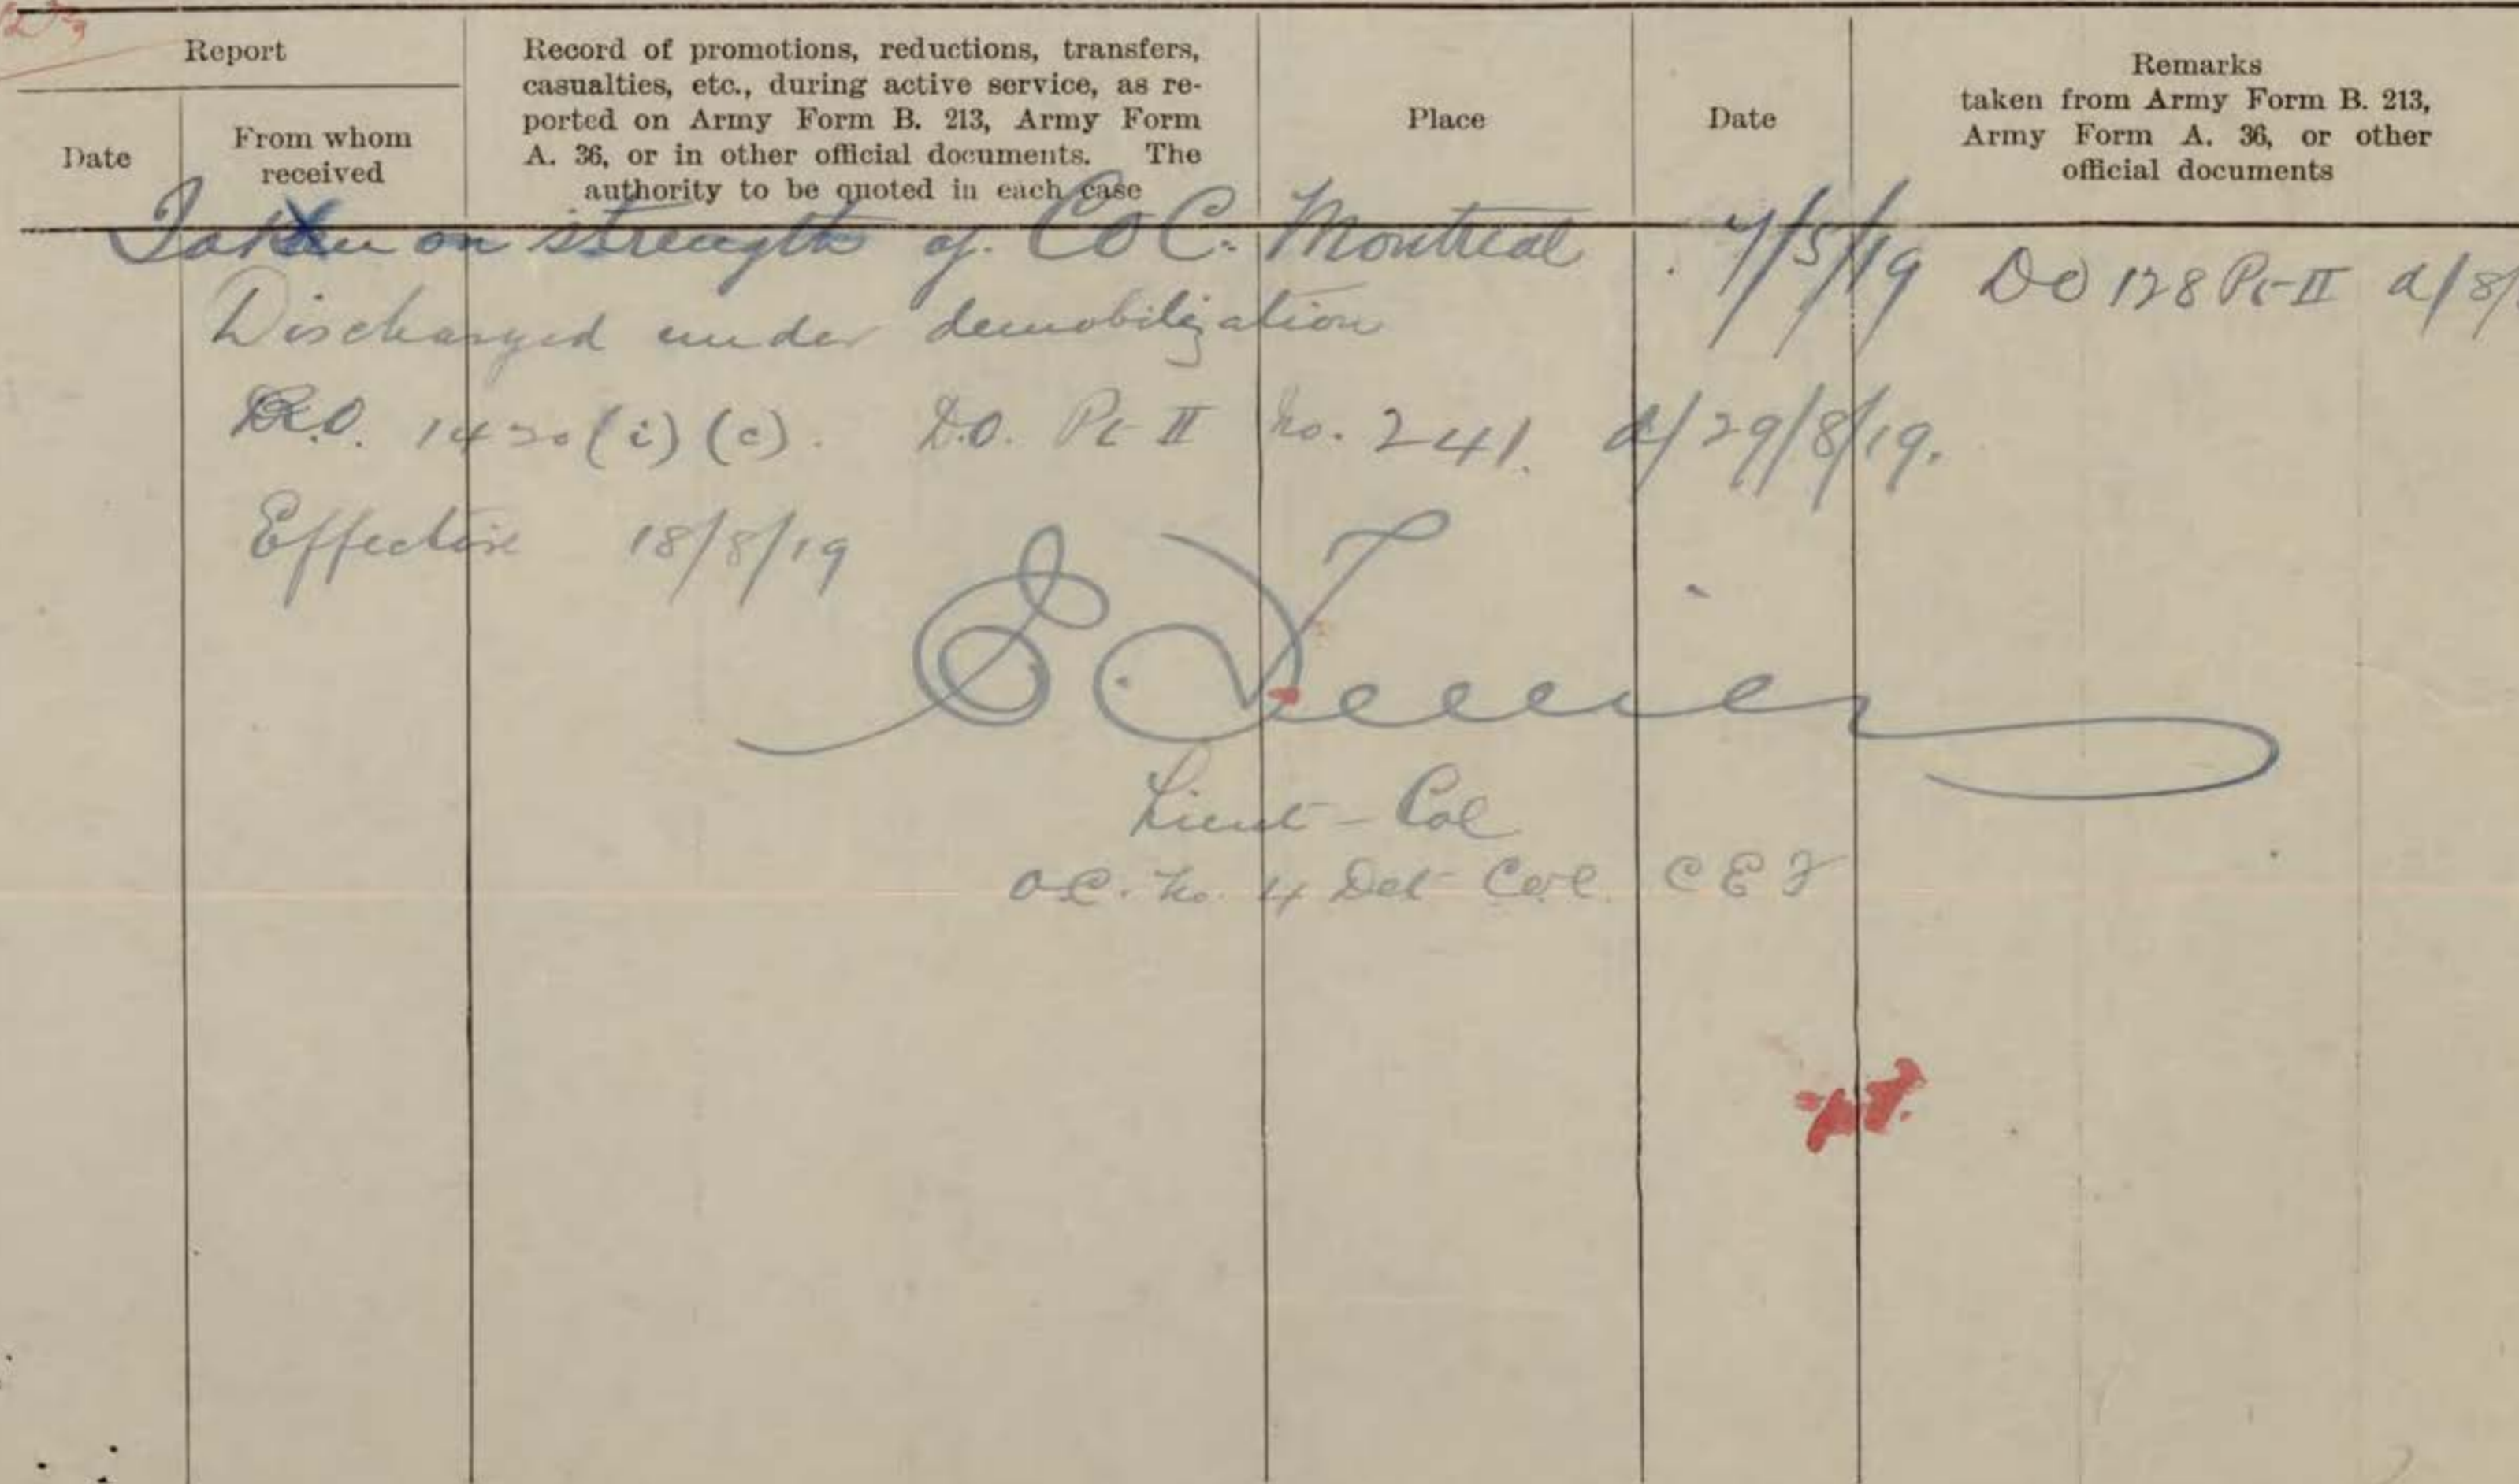 Report
Date
From whom
received
Record of promotions, reductions, transfers,
casualties, etc., during active service, as re-
ported on Army Form B. 213, Army Form
A. 36, or in other official documents. The
authority to be quoted in each case
Place
Date
Remarks
taken from Army Form B. 213,
Army Form A. 36, or other
official documents
Taken on strength of COC. Montreal 7/5/19 DO 128 Pt-II d/8/
Discharged under demobilization
R.O. 1420 (i) (c). D.O. Pt II No. 241. d/29/8/19.
Effective 18/8/19
Lieut-Col
O.C. No. 4 Det C.O.C. C E F